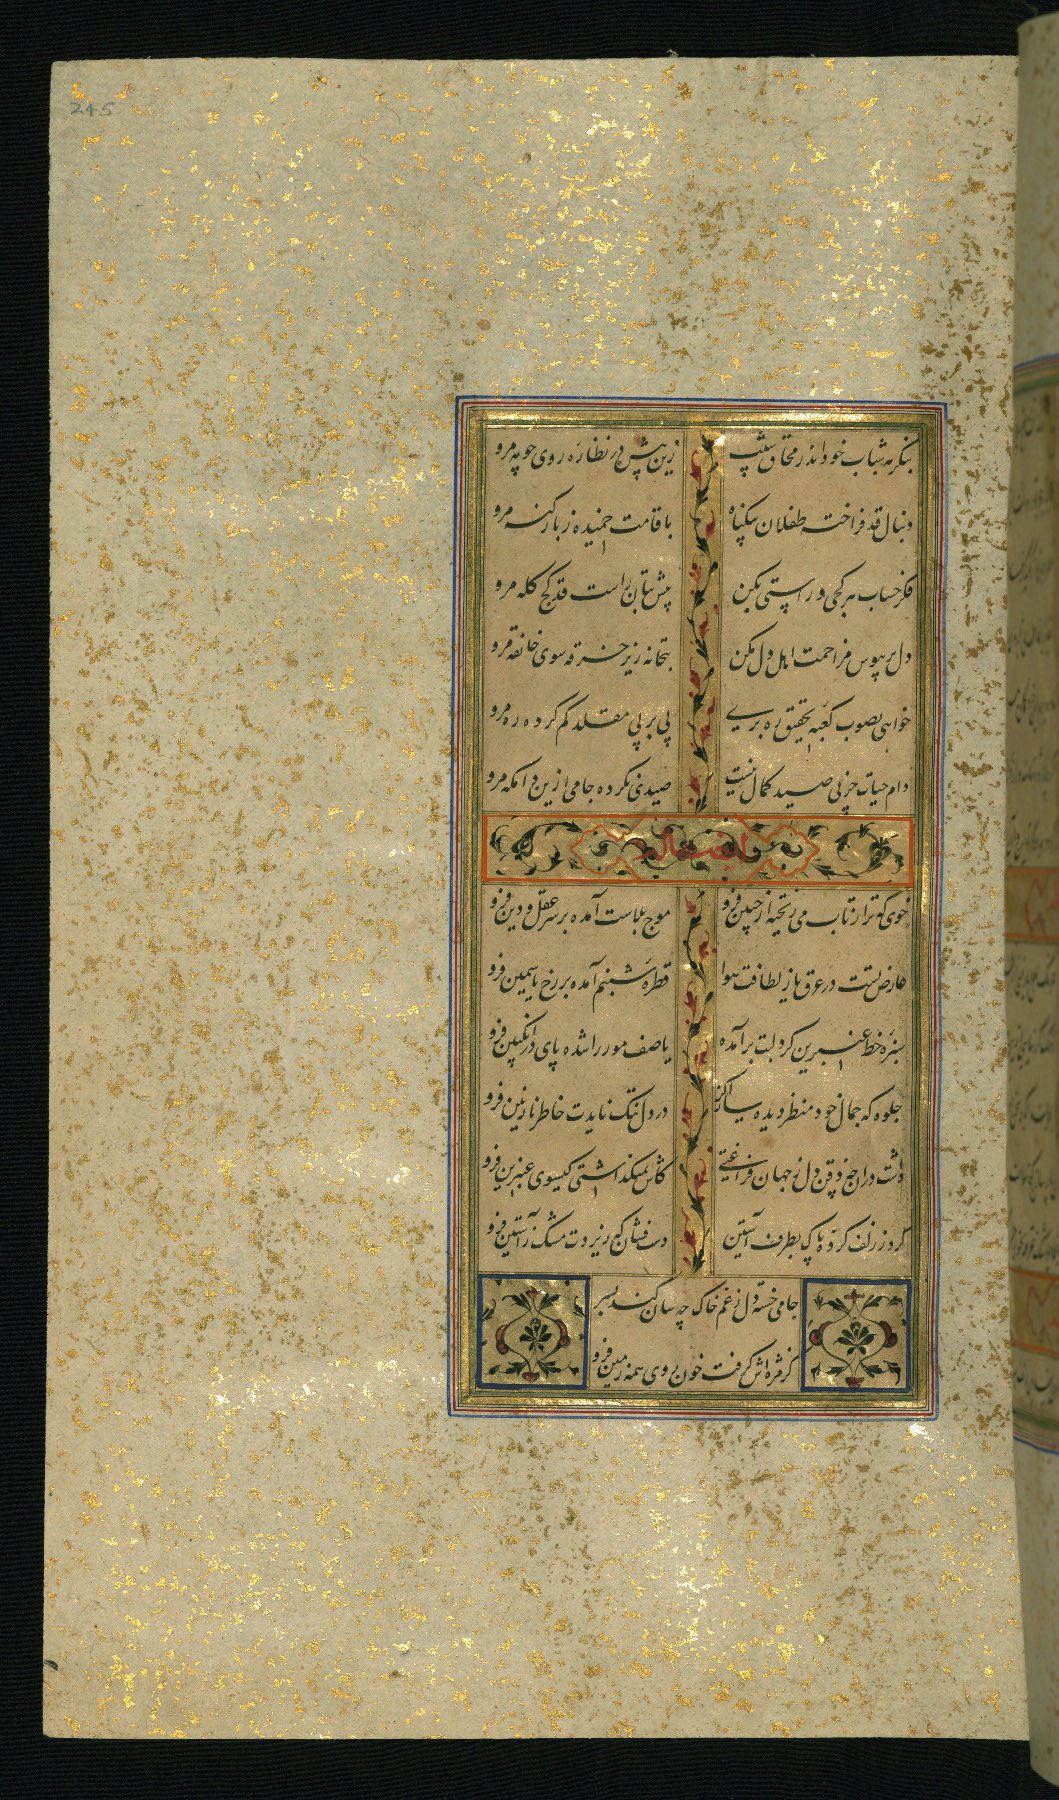 245
بنگر به شباب خود اندر محاق شیب زین پیش در نظاره روی چو مه مرو
دنبال قد فراخته طفلان بیگناه با قامت خمیده ز بار گنه مرو
فکر حساب هر کجی و راستی بکن پیش بتان راست قد کج کله مرو
دل بر هوس مزاحمت اهل دل مکن بتخانه زیر خرقه سوی خانقه مرو
خواهی بصوب کعبه تحقیق ره بری پی بر پی مقلد گم کرده ره مرو
دام حیات جز پی صید کمال نیست صیدی نکرده جامی ازین دامگه مرو
خوی که ترا ز تاب می ریخته از جبین فرو موج بلاست آمده بر سر عقل و دین فرو
عارض تست در عرق یا ز لطافت هوا قطره شبنم آمده بر رخ یاسمین فرو
سبزه خط عنبرین گرد لبت برآمده یا صف مور را شده پای در انگبین فرو
جلوه که جمال خود منظر دیده ساز کز در دل تنگ نایدت خاطر نازنین فرو
داشت در آن چه ذقن دل ز جهان فراغتی کاش نمیگذاشتی گیسوی عنبرین فرو
گرد ز زلف کرده پاک بطرف آستین دست فشان که ریزدت مشک ز آستین فرو
جامی خسته دل ز غم خاک چه سان کند بسر
کز مژه اش گرفت خون روی همه زمین فرو